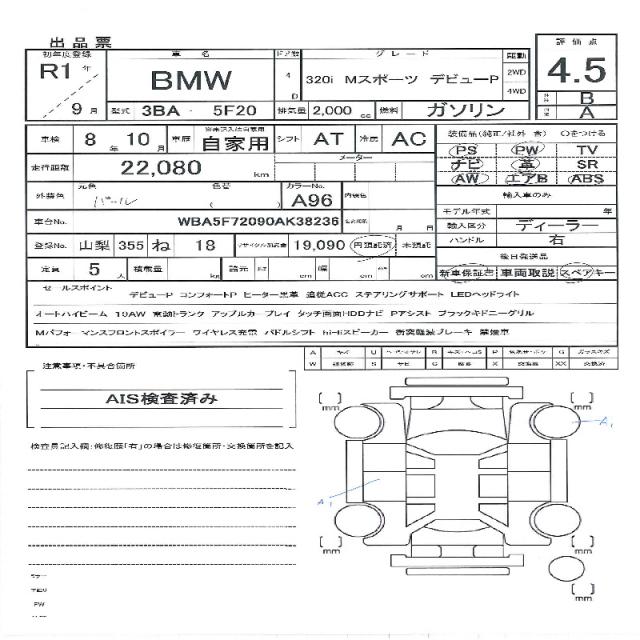 出品票
初年度登録 車名 ドア数 グレード 駆動 評価点
R1年 9月 BMW 4D 320i Mスポーツ デビューP 2WD 4WD 4.5
型式 3BA - 5F20 排気量 2,000 cc 燃料 ガソリン B A
車検 8年 10月 車歴 自家用 シフト AT 冷房 AC 装備品(純正/社外 含) ○をつける
走行距離 22,080 km メーター PS PW TV
ナビ 革 SR
外装色 元色 パール 色替 ( ) カラーNo. A96 内装色 AW エアB ABS
輸入車のみ
車台No. WBA5F72090AK38236 月 日 モデル年式 年
輸入区分 ディーラー
登録No. 山梨 355 ね 18 リサイクル預託金 19,090 円預託済 未預託 ハンドル 右
後日発送品
定員 5人 積載量 kg 諸元 長 cm 幅 cm 高 cm 新車保証書 車両取説 スペアキー
セールスポイント
デビューP コンフォートP ヒーター黒革 追従ACC ステアリングサポート LEDヘッドライト
オートハイビーム 19AW 電動トランク アップルカープレイ タッチ画面HDDナビ Pアシスト ブラックキドニーグリル
Mパフォーマンスフロントスポイラー ワイヤレス充電 パドルシフト hi-fiスピーカー 衝突軽減ブレーキ 禁煙車
A キズ U R P G
W S サビ C X XX 交換済
注意事項・不具合箇所
AIS検査済み
検査員記入欄:修復歴「有」の場合は修復箇所・交換箇所を記入
mm mm
A1
A1
mm mm
mm
PW